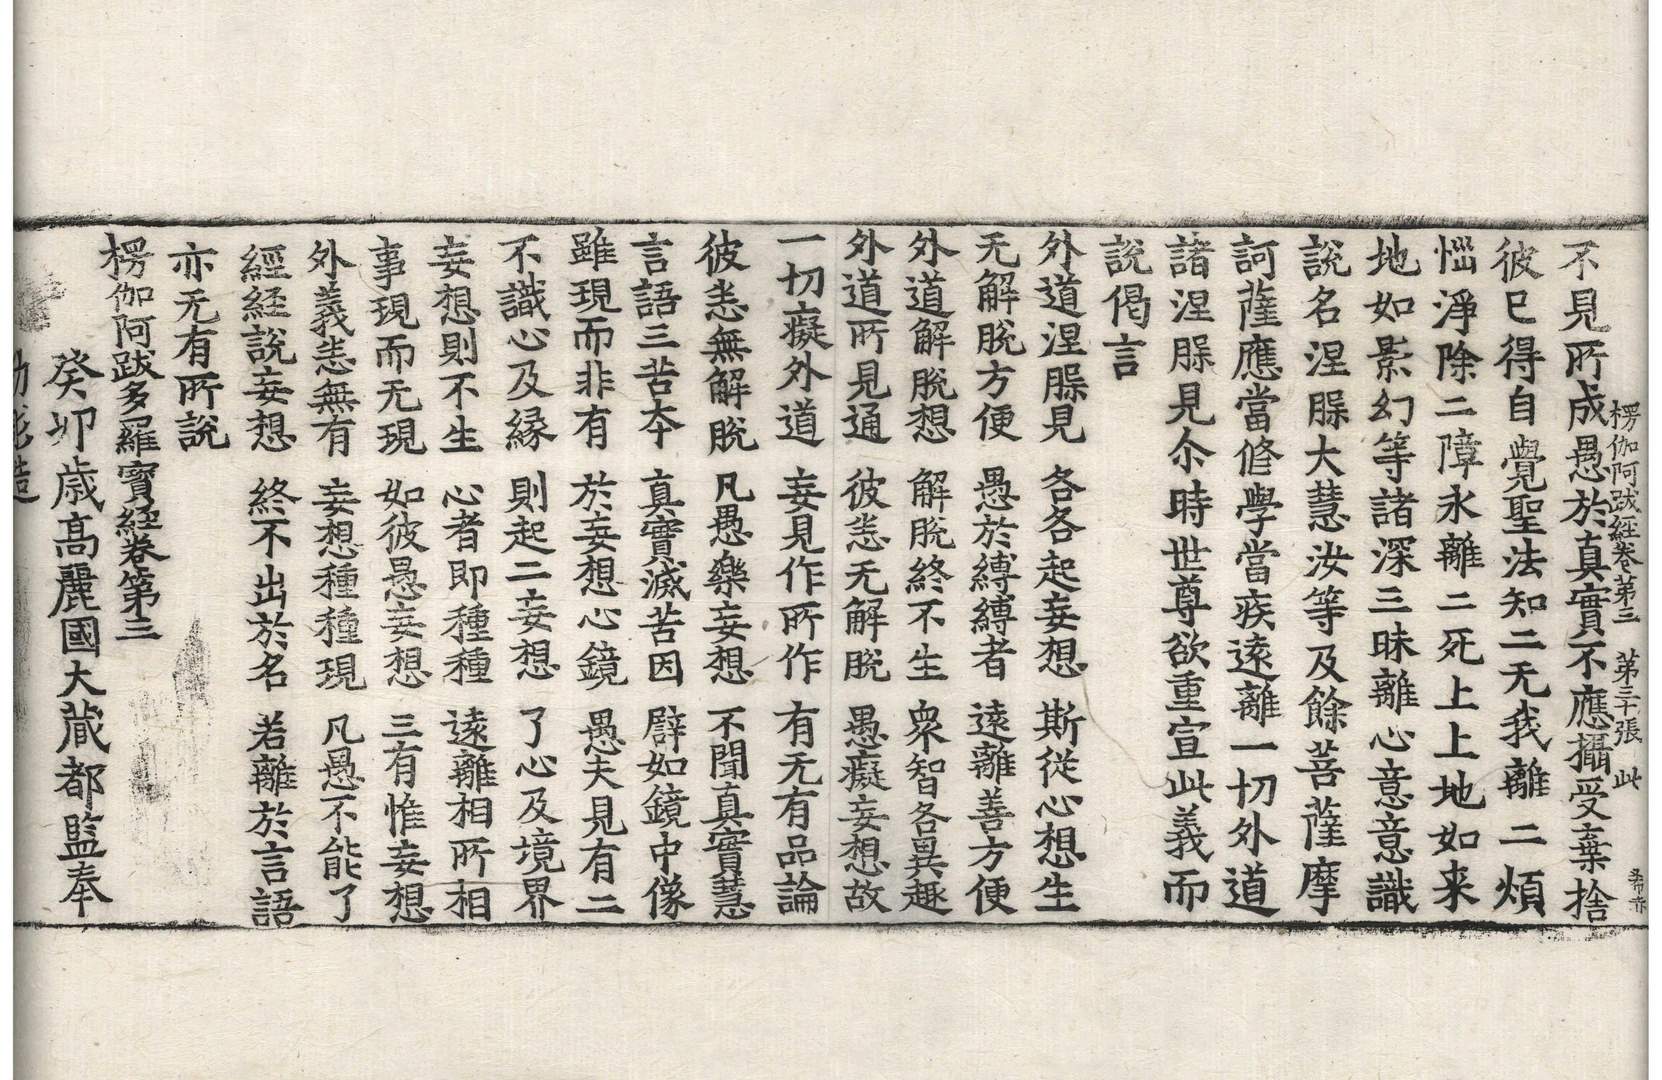 楞伽阿跋經卷第三　第三十張　此
不見所成愚於真實不應攝受棄捨
彼已得自覺聖法知二无我離二煩
惱淨除二障永離二死上上地如来
地如影幻等諸深三昧離心意意識
說名涅槃大慧汝等及餘菩薩摩
訶薩應當修學當疾遠離一切外道
諸涅槃見尒時世尊欲重宣此義而
說偈言
外道涅槃見　各各起妄想　斯從心想生
无解脫方便　愚於縛縛者　遠離善方便
外道解脫想　解脫終不生　衆智各異趣
外道所見通　彼悉无解脫　愚癡妄想故
一切癡外道　妄見作所作　有无有品論
彼悉無解脫　凡愚樂妄想　不聞真實慧
言語三苦本　真實滅苦因　譬如鏡中像
雖現而非有　於妄想心鏡　愚夫見有二
不識心及緣　則起二妄想　了心及境界
妄想則不生　心者即種種　遠離相所相
事現而无現　如彼愚妄想　三有惟妄想
外義悉無有　妄想種種現　凡愚不能了
經經說妄想　終不出於名　若離於言語
亦无有所說
楞伽阿跋多羅寶經卷第三
癸卯歲高麗國大藏都監奉
勅彫造